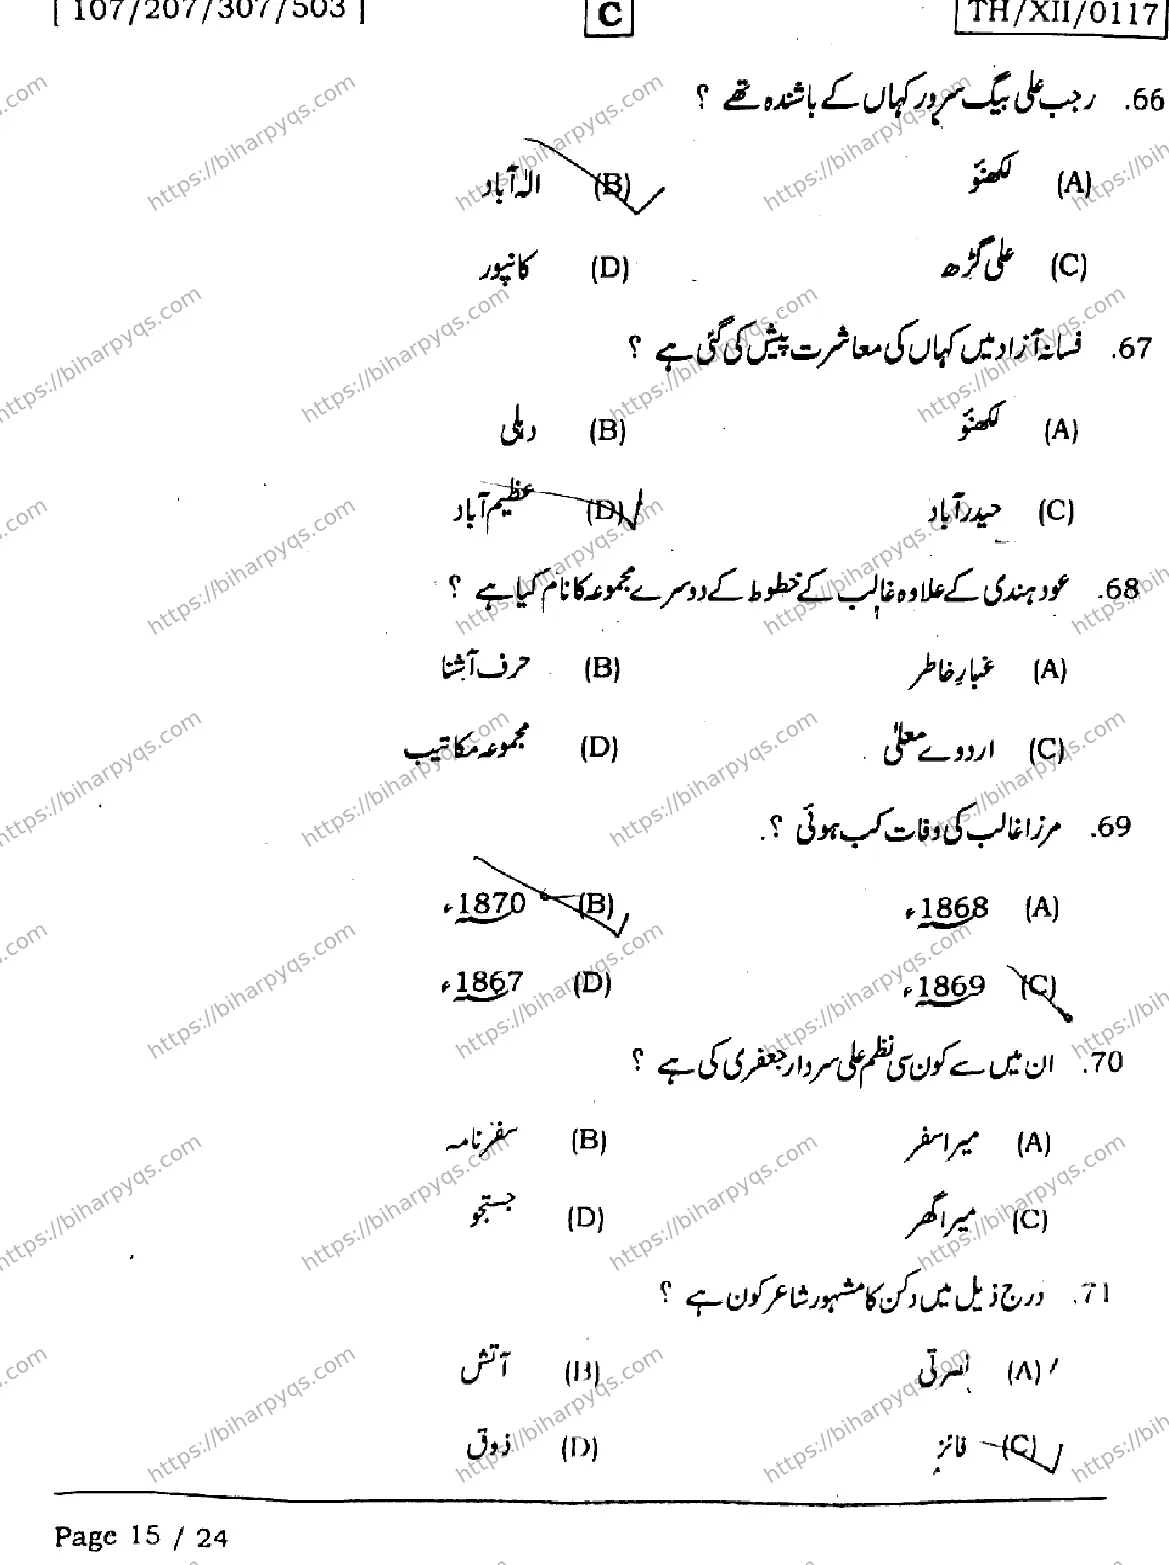 [ 107/207/307/503 ] C TH/XII/0117
66. رجب علی بیگ سرور کہاں کے باشندہ تھے ؟
(A) لکھنؤ (B) الہٰ آباد
(C) علی گڑھ (D) کانپور
67. فسانۂ آزاد میں کہاں کی معاشرت پیش کی گئی ہے ؟
(A) لکھنؤ (B) دہلی
(C) حیدرآباد (D) عظیم آباد
68. عود ہندی کے علاوہ غالب کے خطوط کے دوسرے مجموعہ کا نام کیا ہے ؟
(A) غبارِ خاطر (B) حرف آشنا
(C) اردوے معلیٰ (D) مجموعہ مکاتیب
69. مرزا غالب کی وفات کب ہوئی ؟
(A) 1868ء (B) 1870ء
(C) 1869ء (D) 1867ء
70. ان میں سے کون سی نظم علی سردار جعفری کی ہے ؟
(A) میرا سفر (B) سفرنامہ
(C) میرا گھر (D) جستجو
71. درج ذیل میں دکن کا مشہور شاعر کون ہے ؟
(A) نصرتی (B) آتش
(C) فائز (D) ذوق
Page 15 / 24
https://biharpyqs.com